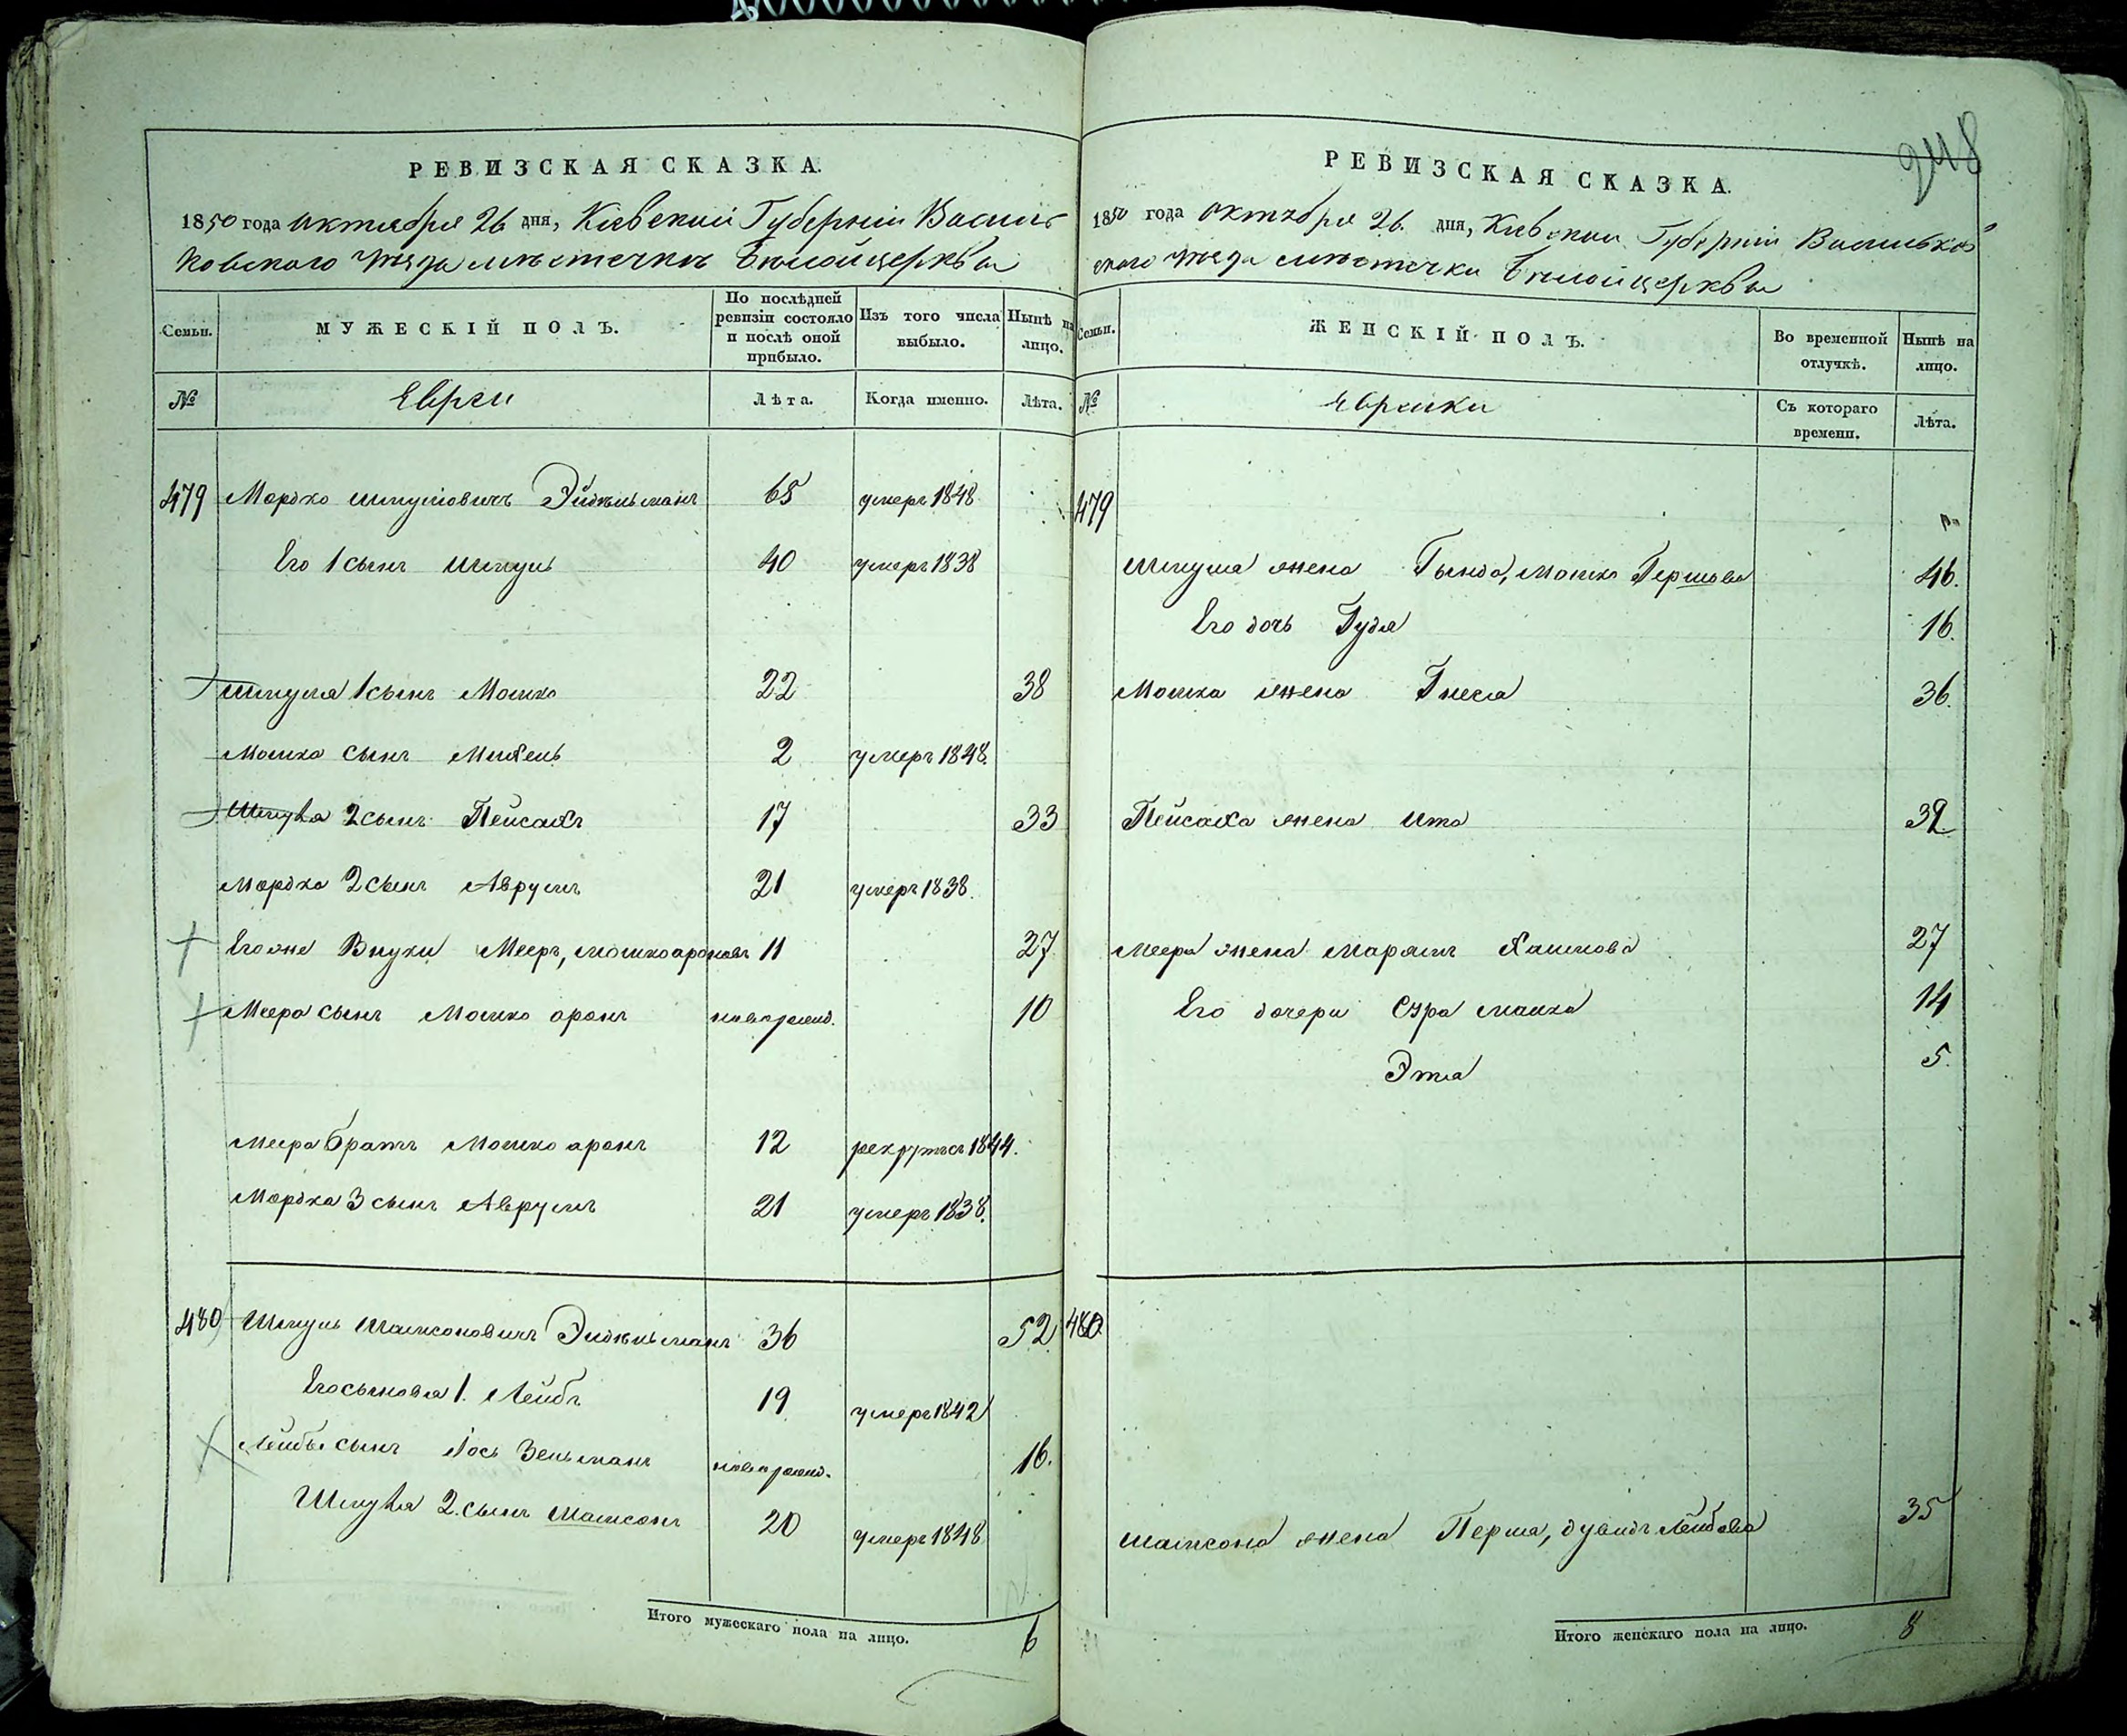 РЕВИЗСКАЯ СКАЗКА.
1850 года октября 26 дня, Киевской Губерніи Василь-
ковского уѣзда мѣстечка Белойцерквы
Семьи.
МУЖЕСКІЙ ПОЛЪ.
По послѣдней ревизіи состояло и послѣ оной прибыло.
Изъ того числа выбыло.
Нынѣ на лицо.
№
Евреи
Лѣта.
Когда именно.
Лѣта.
479 Мордко Шмулiовичъ Эйдельманъ 65 умеръ 1848
Его 1 сынъ Шмуль 40 умеръ 1838
Шмуля 1 сынъ Мошко 22 38
Мошка сынъ Михель 2 умеръ 1848.
Шмуля 2 сынъ Пейсахъ 17 33
Мордка 2 сынъ Аврумъ 21 умеръ 1838.
Его же Внуки Мееръ, Мошко Ароновъ 11 27
Меера сынъ Мошко Аронъ новорожд. 10
Меера братъ Мошко Аронъ 12 1844.
Мордка 3 сынъ Аврумъ 21 умеръ 1838.
480 Шмуль Шамсоновичъ Эйдельманъ 36 52
Его сыновья 1. Лейбъ 19 умеръ 1842
Лейбы сынъ Іось Зельманъ новорожд. 16.
Шмуля 2. сынъ Шамсонъ 20 умеръ 1848
Итого мужескаго пола на лицо. 6
248
РЕВИЗСКАЯ СКАЗКА.
1850 года октября 26. дня, Киевской Губерніи Васильков
ского уѣзда мѣстечка Белойцерквы
Семьи.
ЖЕНСКІЙ ПОЛЪ.
Во временной отлучкѣ.
Нынѣ на лицо.
№
Еврейки
Съ котораго времени.
Лѣта.
479
Шмуля жена Гында, Мошко Гершова 46.
Его дочь Гудя 16.
Мошка жена Гнеся 36.
Пейсаха жена Ита 32.
Меера жена Марьямъ Хаимова 27
Его дочери Сура Малка 14
Этля 5.
480.
Шамсона жена Перля, Дувидъ Лейбова 35
Итого женскаго пола на лицо. 8